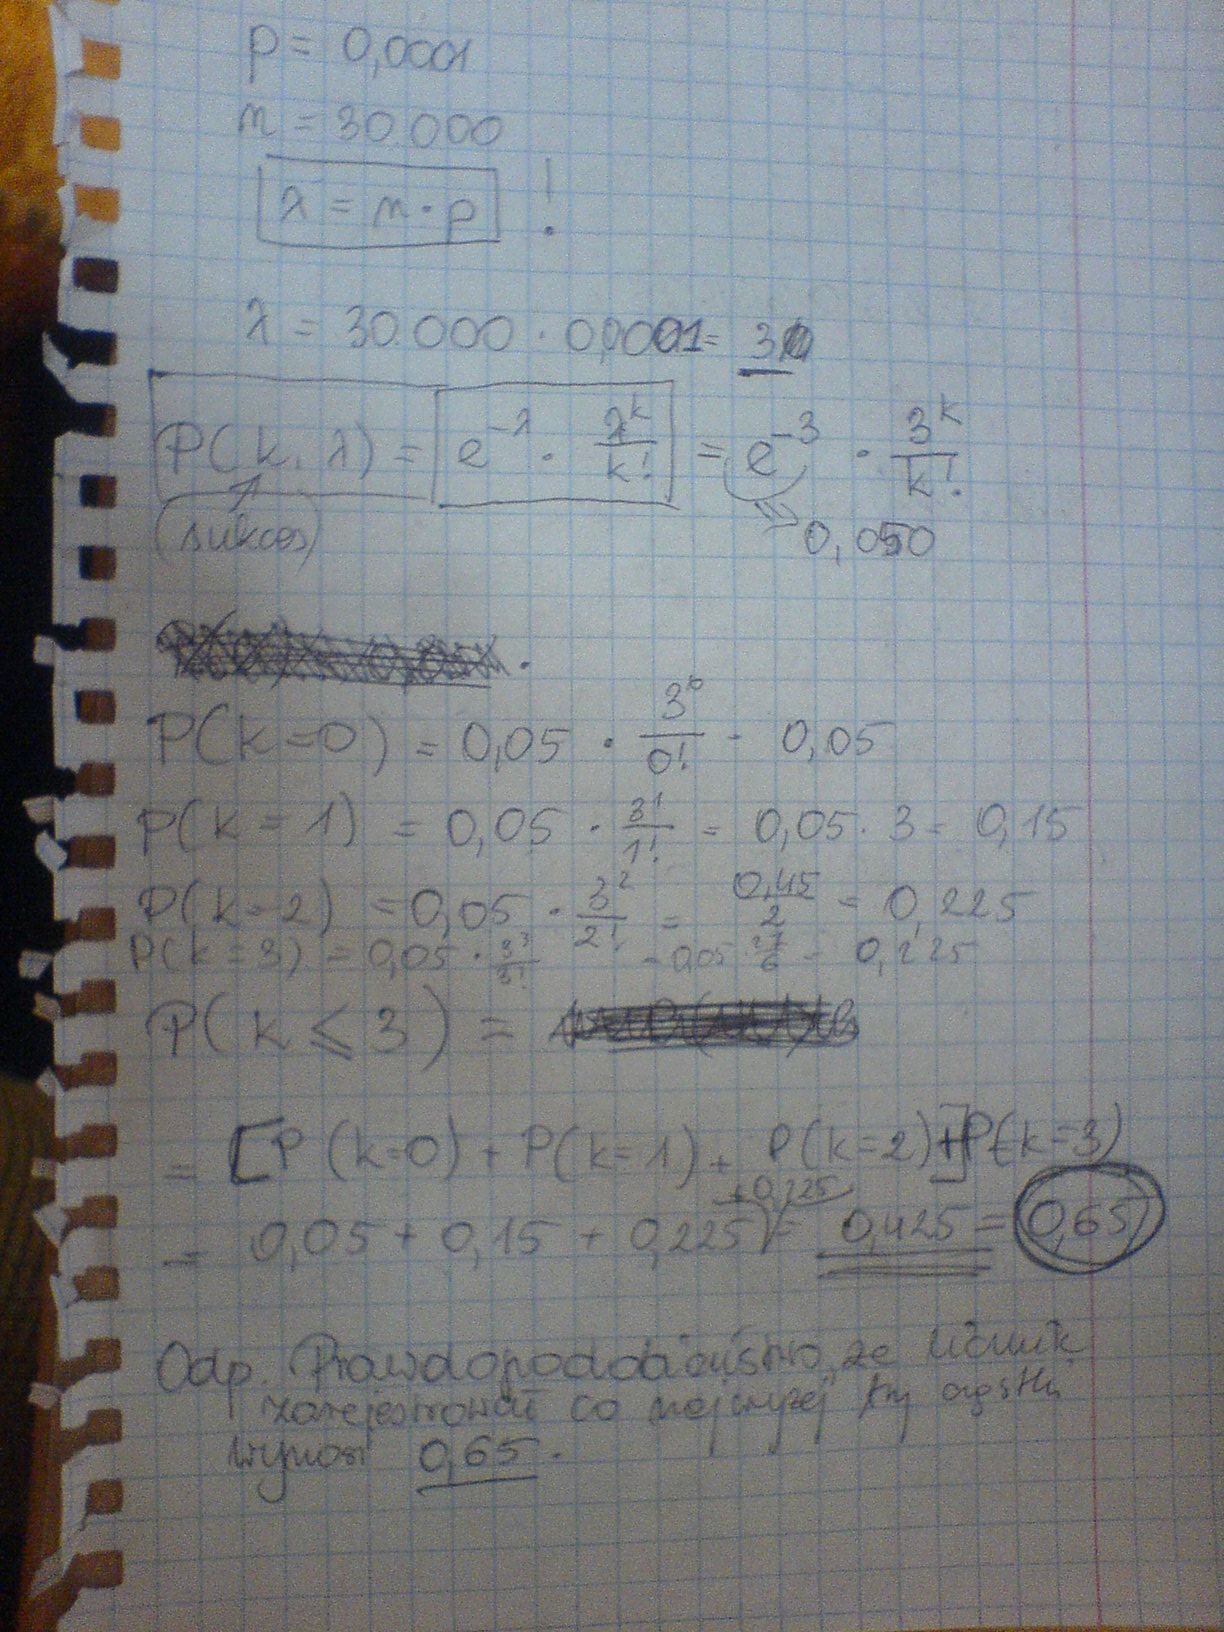 p = 0,0001
n = 30.000
λ = n · p !
λ = 30.000 · 0,0001 = 3
P(k, λ) = e^-λ · λ^k/k! = e^-3 · 3^k/k!
(sukces)
0,050
P(k=0) = 0,05 · 3^0/0! = 0,05
P(k=1) = 0,05 · 3^1/1! = 0,05 · 3 = 0,15
P(k=2) = 0,05 · 3^2/2! = 0,45/2 = 0,225
P(k=3) = 0,05 · 3^3/3! = 0,05 · 27/6 = 0,225
P(k ⩽ 3) =
= [P(k=0) + P(k=1) + P(k=2)] + P(k=3)
+0,225
= 0,05 + 0,15 + 0,225 = 0,425 = 0,65
Odp. Prawdopodobieństwo, że licznik
zarejestrował co najwyżej trzy cząstki
wynosi 0,65.